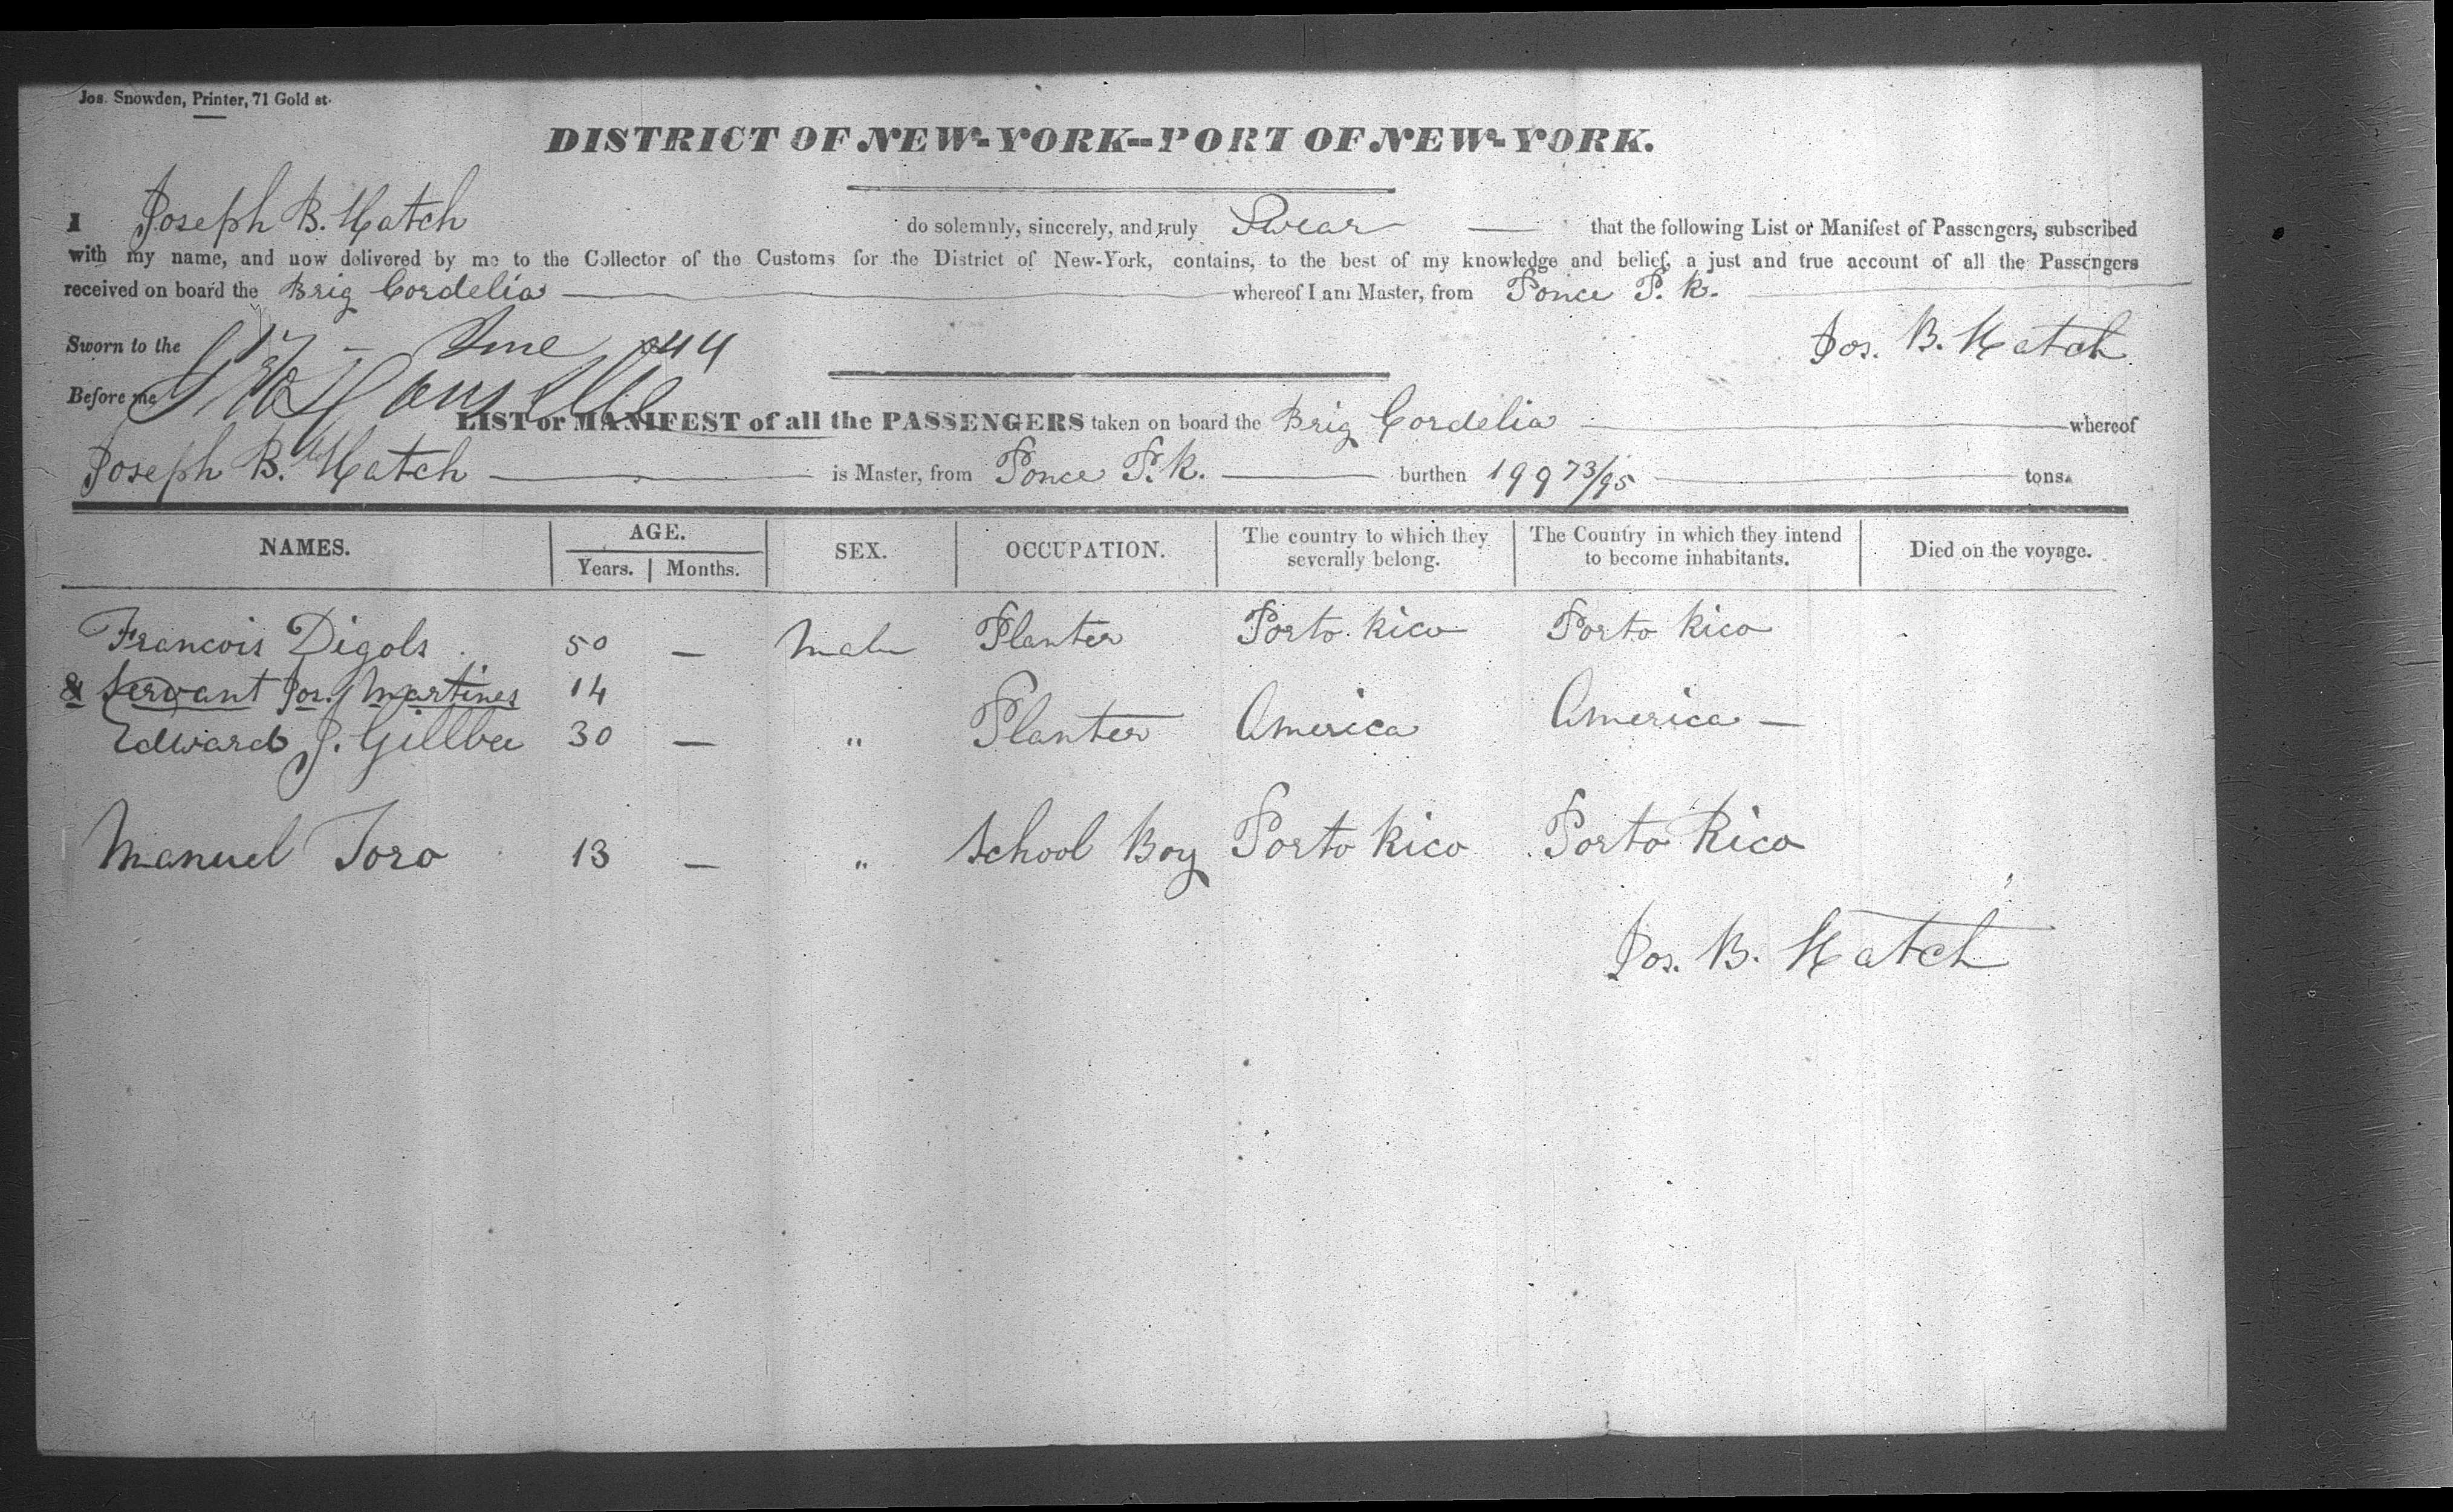 Jos. Snowden, Printer, 71 Gold st.
DISTRICT OF NEW-YORK--PORT OF NEW-YORK.
I Joseph B. Hatch do solemnly, sincerely, and truly Swear — that the following List or Manifest of Passengers, subscribed
with my name, and now delivered by me to the Collector of the Customs for the District of New-York, contains, to the best of my knowledge and belief, a just and true account of all the Passengers
received on board the Brig Cordelia — whereof I am Master, from Ponce P. R.
Sworn to the 17 - June 1844 Jos. B. Hatch
Before me
LIST or MANIFEST of all the PASSENGERS taken on board the Brig Cordelia — whereof
Joseph B. Hatch — is Master, from Ponce P. R. — burthen 199 73/95 — tons.
NAMES. AGE. Years. Months. SEX. OCCUPATION. The country to which they severally belong. The Country in which they intend to become inhabitants. Died on the voyage.
Francois Digols 50 — Male Planter Porto Rico Porto Rico
& Servant Jos. Martines 14
Edward J. 30 — " Planter America America —
Manuel Toro 13 — " School Boy Porto Rico Porto Rico
Jos. B. Hatch